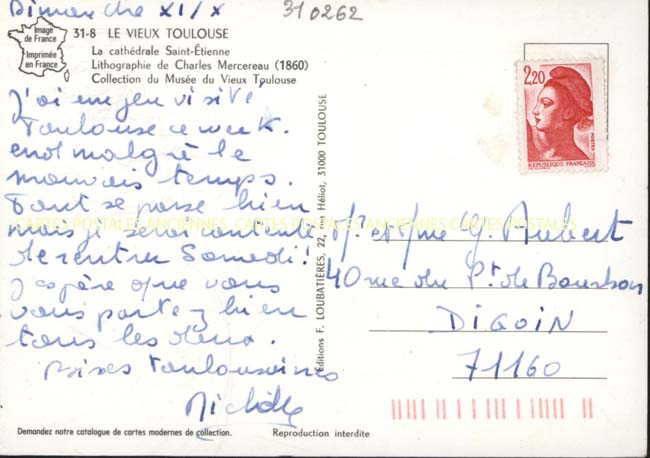 Dimanche XI/X
310262
Image
de France
Imprimée
en France
31-8 LE VIEUX TOULOUSE
La cathédrale Saint-Étienne
Lithographie de Charles Mercereau (1860)
Collection du Musée du Vieux Toulouse
J'ai un peu visité
Toulouse ce week-
end malgré le
mauvais temps.
Tout se passe bien
mais je serai contente
de rentrer Samedi!
J'espère que vous
vous portez bien
tous les deux.
Bises Toulousaines
Michèle
Demandez notre catalogue de cartes modernes de collection.
Reproduction interdite
Éditions F. LOUBATIÈRES, 22, rue Héliot, 31000 TOULOUSE
2,20
POSTES
REPUBLIQUE FRANÇAISE
Mr et Mme G. Aubert
40 rue du Pt de Bourbon
DIGOIN
71160
CARTES POSTALES ANCIENNES CARTES POSTALES ANCIENNES CARTES POSTALES